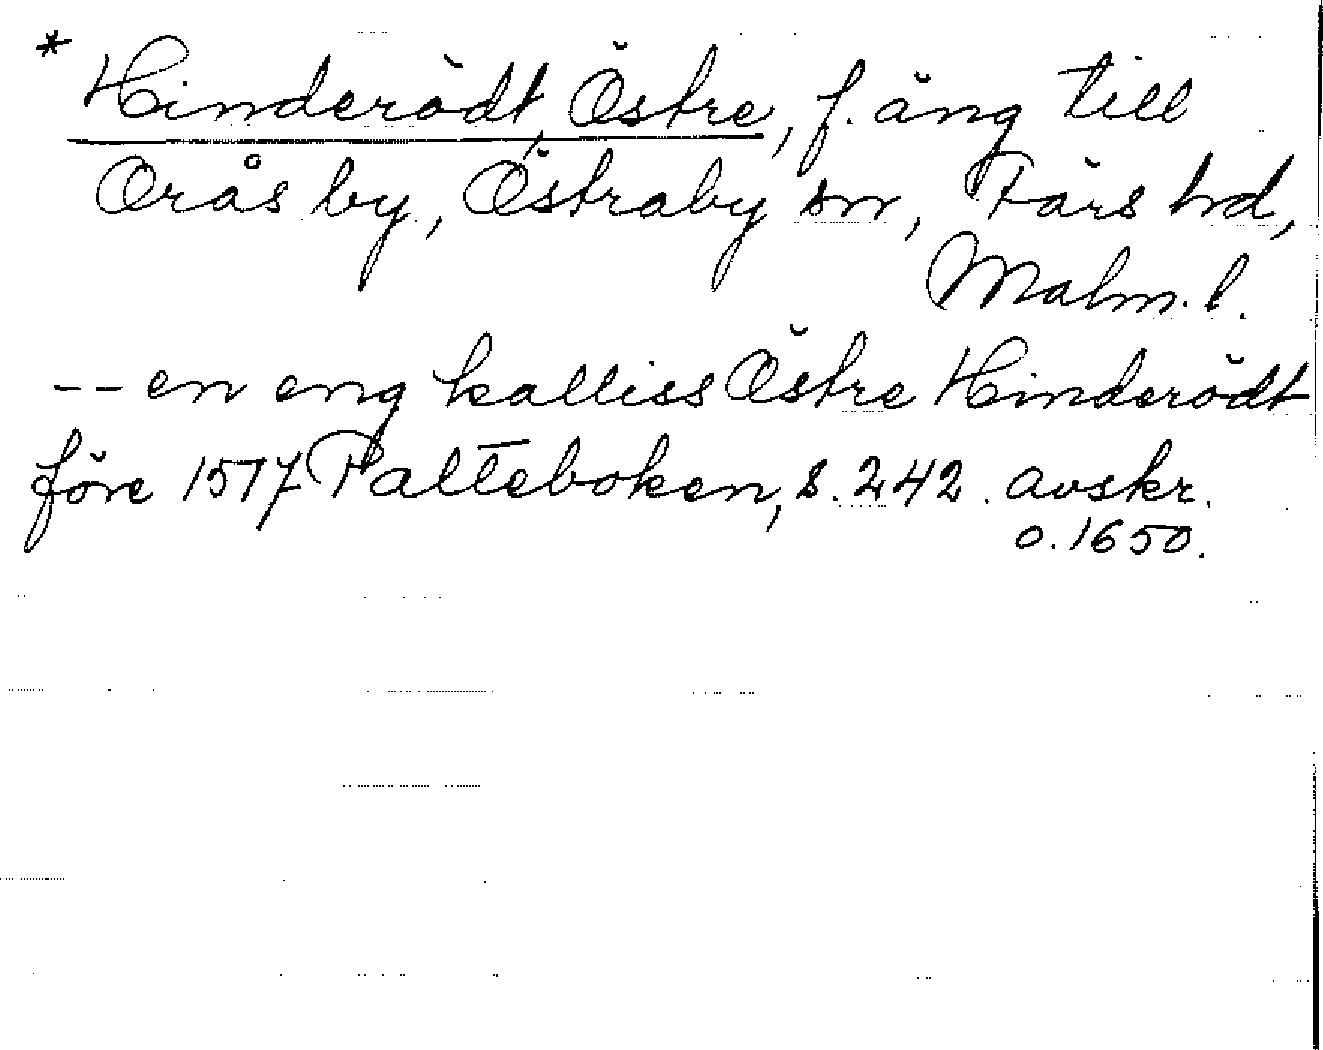 * Hinderödt, Östre, f. äng till
Orås by, Östraby sn, Färs hd,
Malm. l.
-- en eng kalliss Östre Hinderödt
före 1517 Palteboken, s. 242. avskr.
o. 1650.